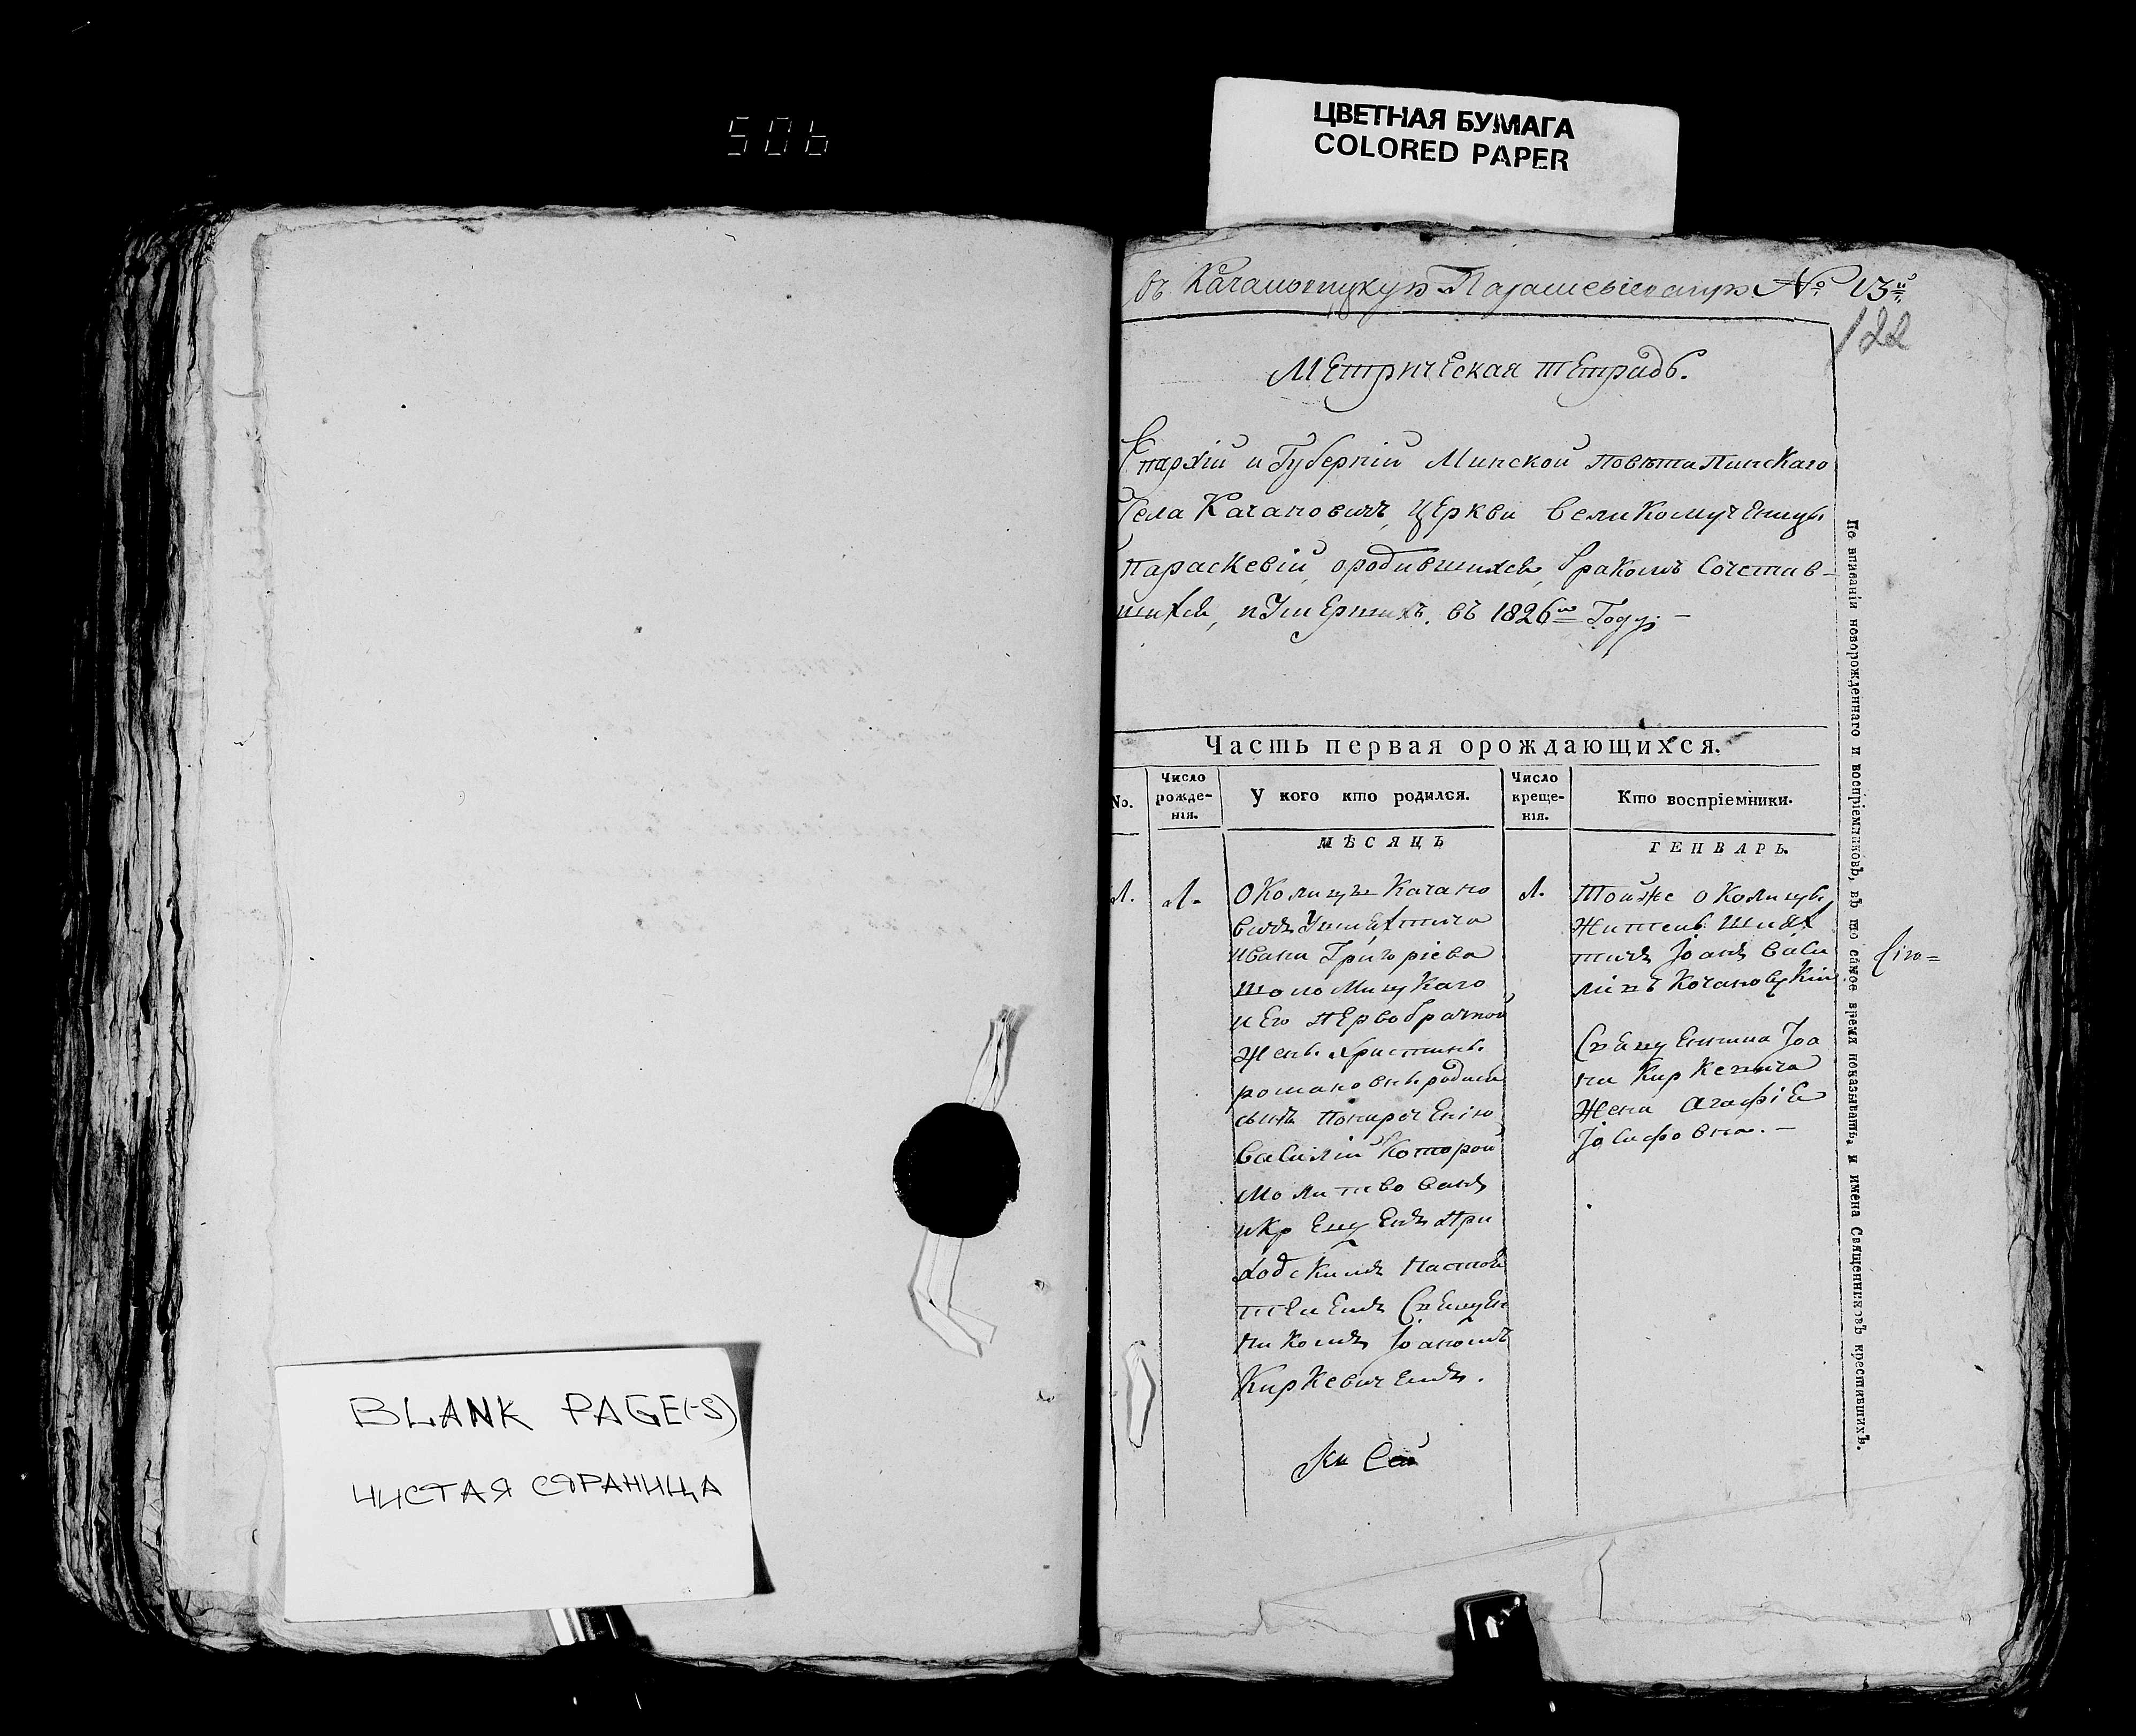 506
ЦВЕТНАЯ БУМАГА
COLORED PAPER
въ № 13й
122
Метрическая тетрадь.
Епархій и Губерніи Минской Повѣта Пинскаго
Села Качановичъ, Церкви Великомученицы
Параскевіи, ородившихся, Бракомъ Сочетав-
шихся, иУмершихъ, въ 1826го Году. —
Часть первая орождающихся.
No.
Число
рожде-
нія.
У кого кто родился.
Число
креще-
нія.
Кто воспріемники.
МѢСЯЦЪ
ГЕНВАРЬ.
1.
1.
Околицы Качано
вичъ Ушляхтича
Ивана Григоріева
Шоломицкаго
и Его Первобрачной
Жены Христины
Романовны родился
сынъ Понаречѣнію
Василій Которой
Молитвованъ
иКрещенъ При
ходскимъ Настоя
телемъ Священ
никомъ Іоаномъ
Киркевичемъ.
1.
Тойже околицы
Житель Шлях
тичъ Іоанъ Васи
ліевъ Качановскій
Священника Іоа
на Киркевича
Жена Агафія
Іосифовна. —
По вписаніи новорожденнаго и воспріемниковъ, въ то самое время показывать, и имена Священниковъ крестившихъ.
BLANK PAGE(-S)
ЧИСТАЯ СТРАНИЦА